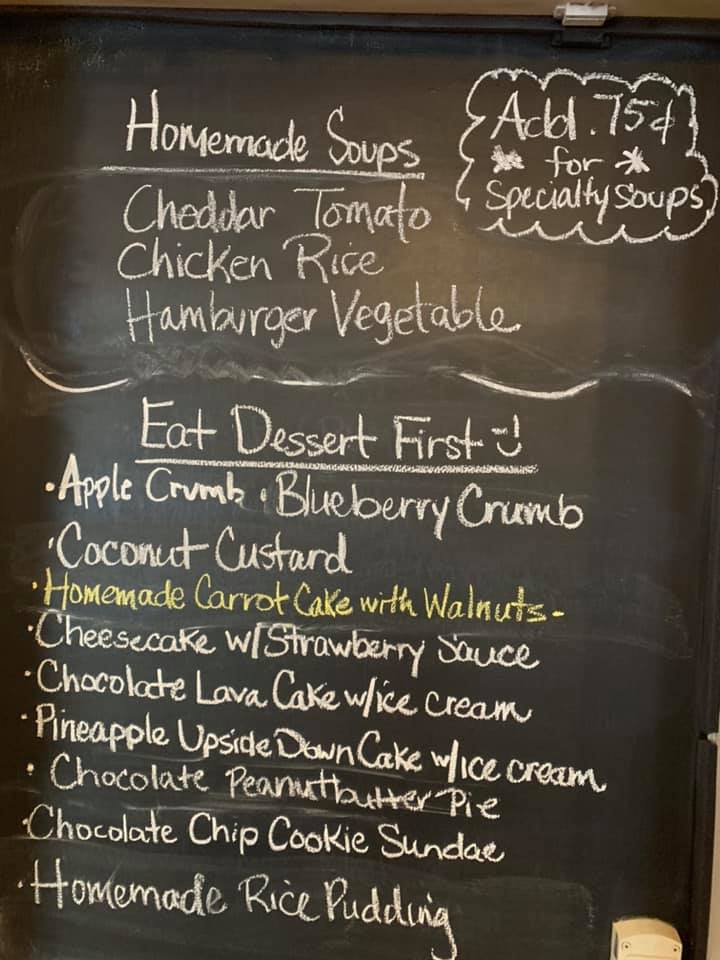 Homemade Soups
Add .75¢
* for *
Specialty Soups
Cheddar Tomato
Chicken Rice
Hamburger Vegetable
Eat Dessert First :)
• Apple Crumb • Blueberry Crumb
• Coconut Custard
• Homemade Carrot Cake with Walnuts -
• Cheesecake w/Strawberry Sauce
• Chocolate Lava Cake w/ice cream
• Pineapple Upside Down Cake w/ice cream
• Chocolate Peanutbutter Pie
• Chocolate Chip Cookie Sundae
• Homemade Rice Pudding